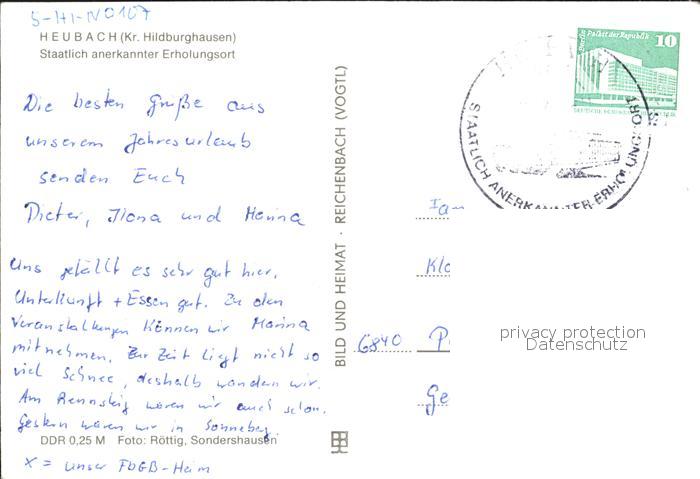 5-H1-IV 0107
HEUBACH (Kr. Hildburghausen)
Staatlich anerkannter Erholungsort
Die besten Grüße aus
unserem Jahresurlaub
senden Euch
Dieter, Ilona und Marina
Uns gefällt es sehr gut hier,
Unterkunft + Essen gut. Zu den
Veranstaltungen können wir Marina
mitnehmen. Zur Zeit liegt nicht so
viel Schnee, deshalb wandern wir.
Am Rennsteig waren wir auch schon.
Gestern waren wir in Sonneberg.
DDR 0,25 M Foto: Röttig, Sondershausen
x = unser FDGB-Heim
BILD UND HEIMAT · REICHENBACH (VOGTL)
Berlin Palast der Republik 10
STAATLICH ANERKANNTER ERHOLUNGSORT
Fam
Klo
6840 P
Ge
privacy protection
Datenschutz